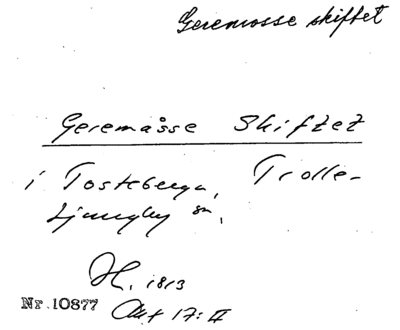 Geremosse skiftet
Geremåsse Skiftet
i Tosteberga, Trolle-
Ljungby sn.
H. 1813
Nr. 10877 Akt 17: II